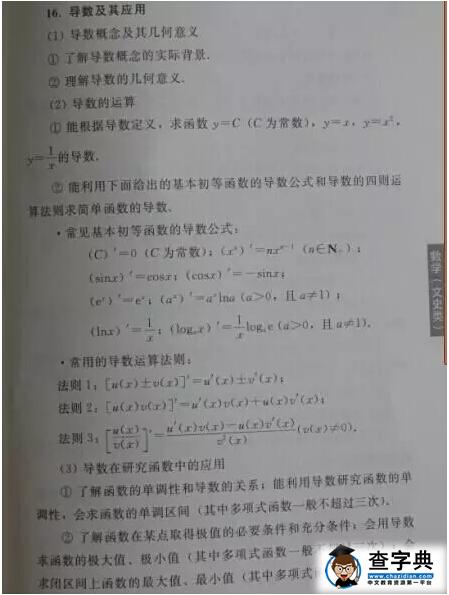 16. 导数及其应用
(1) 导数概念及其几何意义
① 了解导数概念的实际背景.
② 理解导数的几何意义.
(2) 导数的运算
① 能根据导数定义，求函数 y=C (C 为常数)，y=x，y=x²，
y=1/x 的导数.
② 能利用下面给出的基本初等函数的导数公式和导数的四则运
算法则求简单函数的导数.
·常见基本初等函数的导数公式：
(C)′=0 (C 为常数)；(xⁿ)′=nxⁿ⁻¹ (n∈N₊)；
(sinx)′=cosx；(cosx)′=－sinx；
(eˣ)′=eˣ；(aˣ)′=aˣlna (a>0，且 a≠1)；
(lnx)′=1/x；(logₐx)′=1/x logₐe (a>0，且 a≠1).
·常用的导数运算法则：
法则 1：[u(x)±v(x)]′=u′(x)±v′(x)；
法则 2：[u(x)v(x)]′=u′(x)v(x)+u(x)v′(x)；
法则 3：[u(x)/v(x)]′=(u′(x)v(x)－u(x)v′(x))/v²(x) (v(x)≠0).
(3) 导数在研究函数中的应用
① 了解函数的单调性和导数的关系；能利用导数研究函数的单
调性，会求函数的单调区间 (其中多项式函数一般不超过三次).
② 了解函数在某点取得极值的必要条件和充分条件；会用导数
求函数的极大值、极小值 (其中多项式函数一般
求闭区间上函数的最大值、最小值 (其中多项式
数学（文史类）
查字典
www.chazidian.com
中文教育资源第一平台